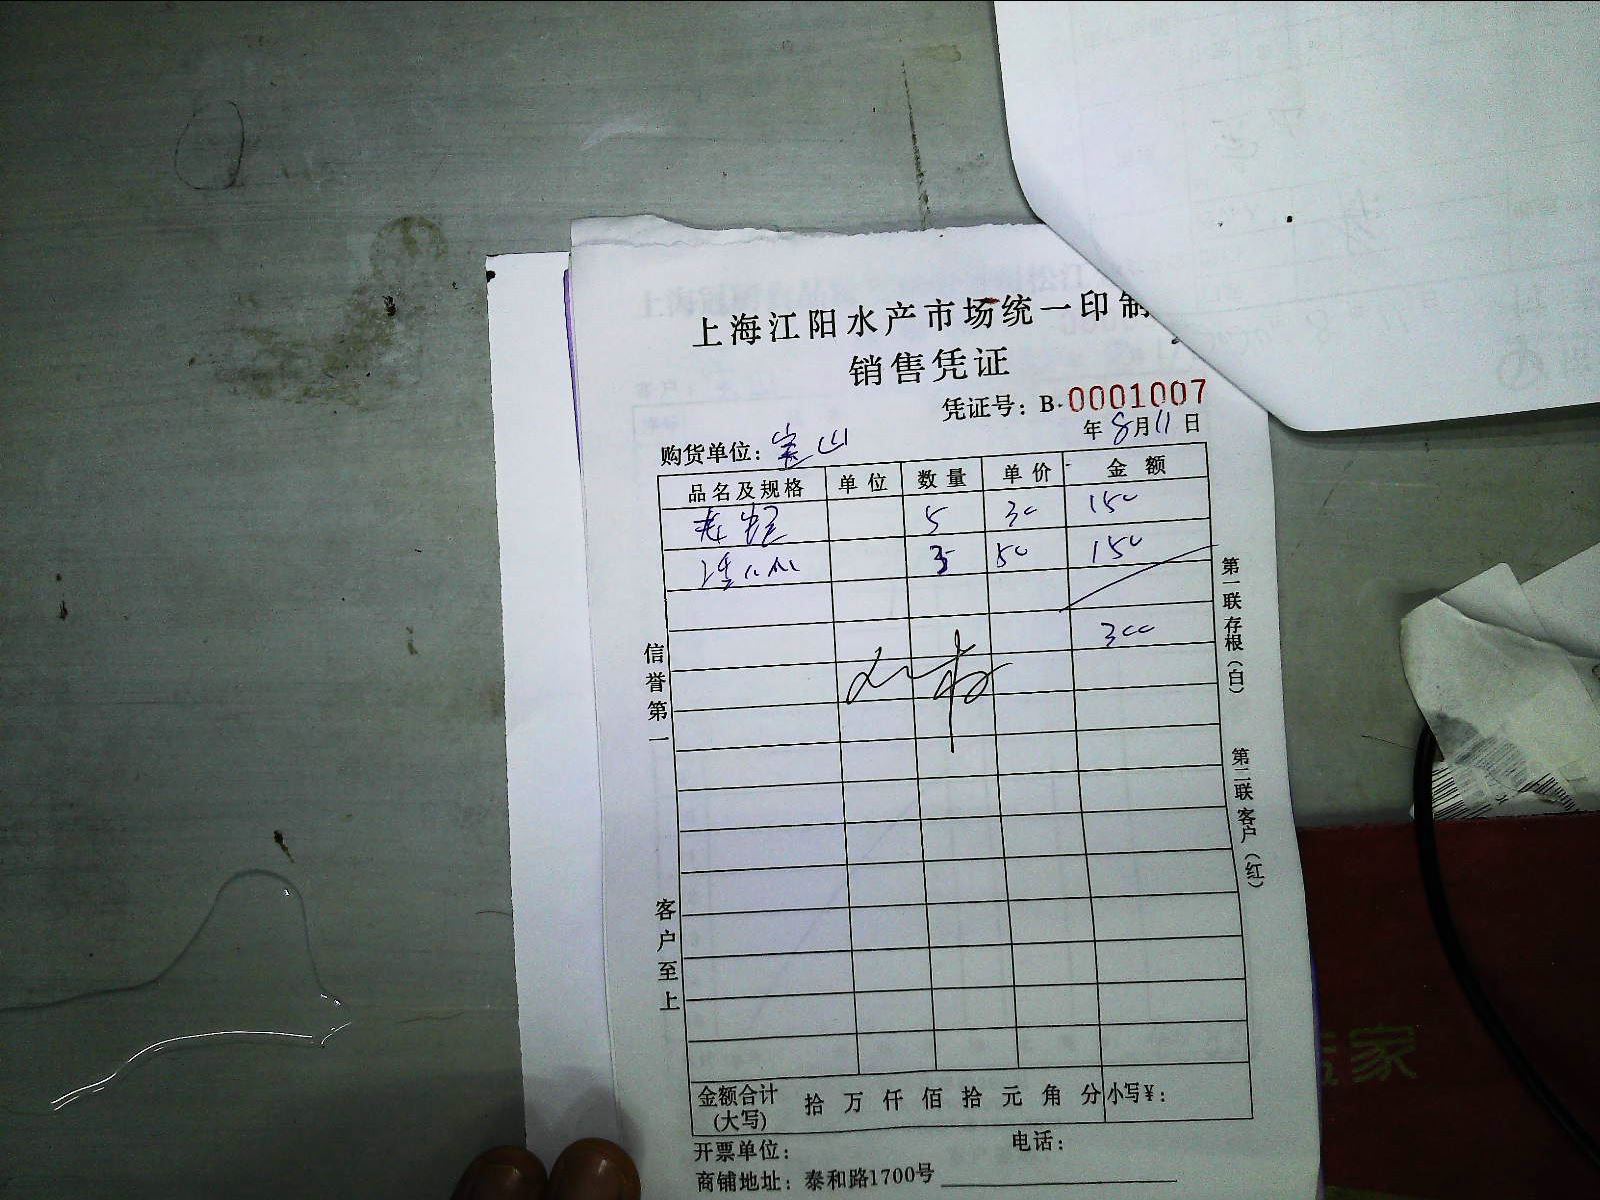 上海江阳水产市场统一印制
销售凭证
凭证号：B·0001007
年8月11日
购货单位：宝山
品名及规格 单位 数量 单价 金额
5 30 150
3 50 150
300
信誉第一
客户至上
第一联存根（白）
第二联客户（红）
金额合计(大写) 拾 万 仟 佰 拾 元 角 分 小写￥：
开票单位： 电话：
商铺地址：泰和路1700号
家